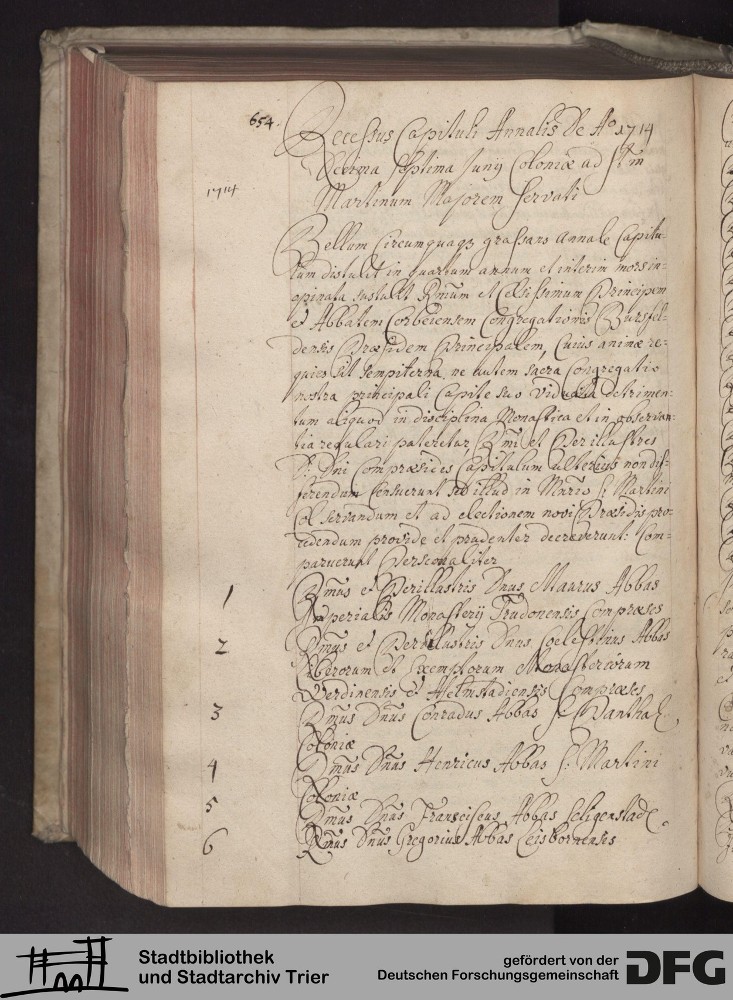 654.
Recessus Capituli Annalis De Aº 1714
Decima septima Junij Coloniæ ad St: in
1714
Martinum Majorem servati
Bellum circumquaq3 grassans Annale Capitu-
lum distulit in quartum annum et interim mors in=
opinata sustulit Rmum et Celsissimum Principem
et Abbatem Corbeiensem Congregationis Bursfel-
densis Præsidem Principalem, Cuius animæ re=
quies sit sempiterna. ne autem sacra Congregatio
nostra principali Capite suo viduata detrimen-
tum aliquod in disciplina Monastica et in observan-
tia regulari pateretur Rmi et Perillustres
D: Dni Compræsides Capitulum ulterius non dif-
ferendum Censuerunt sed illud in Mnrio S: Martini
Col servandum et ad electionem novi Præsidis pro-
cedendum provide et prudenter decreverunt: Com=
paruerunt Personaliter
1 Rmus et Perillustris Dnus Maurus Abbas
Imperialis Monasterij Trudonensis Compræses
2 Rmus et Perillustris Dnus Coelestinus Abbas
Liberorum et Exemptorum Monasteriorum
Werdinensis et Helmstadiensis Compræses
3 Rmus Dnus Conradus Abbas S: Panthal:
Coloniæ
4 Rmus Dnus Henricus Abbas S: Martini
Coloniæ
5 Rmus Dnus Franciscus Abbas Seligenstad:
6 Rmus Dnus Gregorius Abbas Leisbornensis
Stadtbibliothek
und Stadtarchiv Trier
gefördert von der
Deutschen Forschungsgemeinschaft
DFG